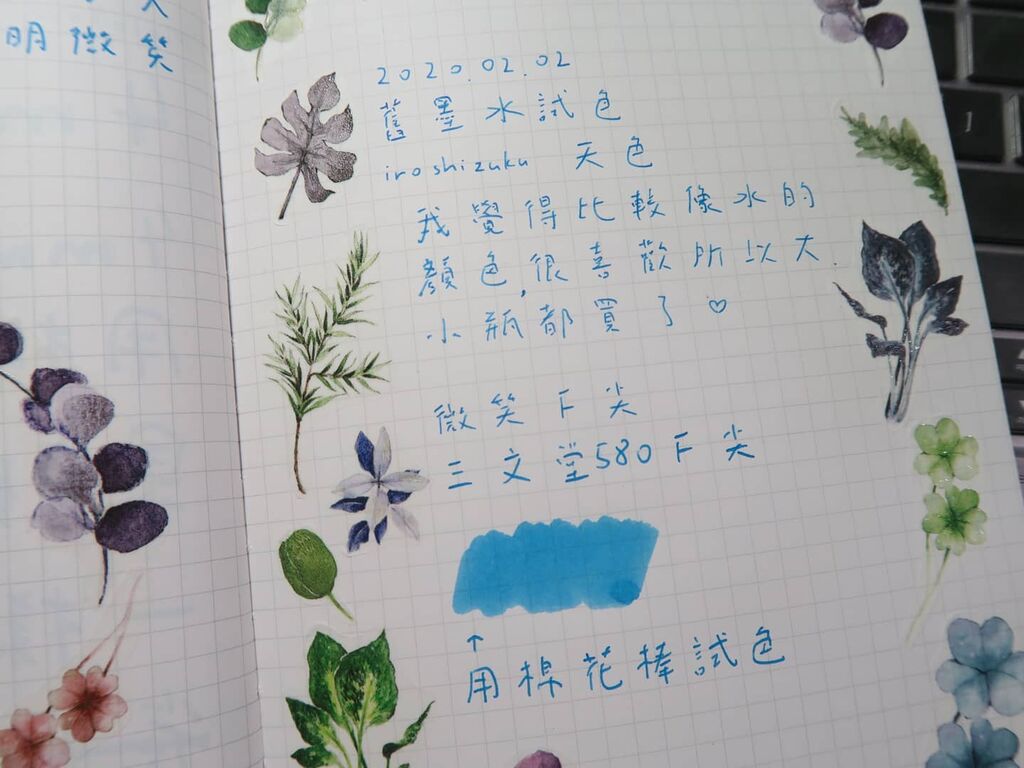 明微笑
2020.02.02
舊墨水試色
iroshizuku 天色
我覺得比較像水的
顏色,很喜歡所以大
小瓶都買了♡
微笑F尖
三文堂580F尖
↑
用棉花棒試色